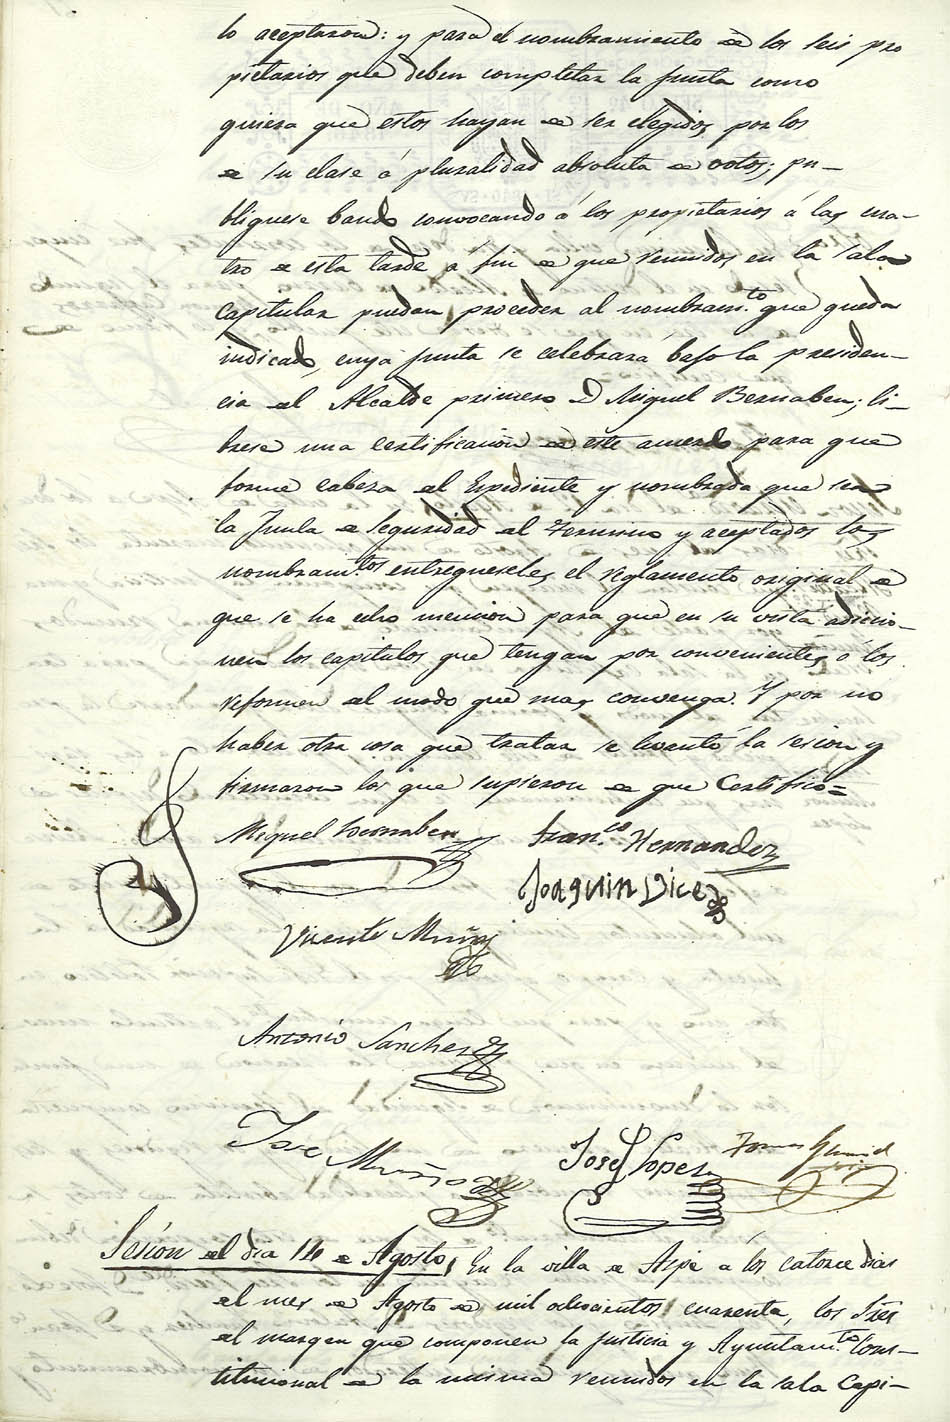 lo aceptaron: y para el nombramiento de los seis pro
pietarios que deben completar la junta como
quiera que estos hayan de ser elegidos por los
de su clase á pluralidad absoluta de votos; pu-
bliquese bando convocando á los propietarios á las cua-
tro de esta tarde á fin de que reunidos en la sala
capitular puedan proceder al nombram.to que queda
indicado, cuya junta se celebrará bajo la presiden-
cia del Alcalde primero D Miguel Bernabeu; li-
brese una certificacion de este acuerdo para que
forme cabeza del Espediente y nombrada que sea
la Junta de Seguridad del Termino y aceptados los
nombram.tos entregueseles el reglamento original de
que se ha echo mencion para que en su vista adicio-
nen los capitulos que tengan por convenientes ó los
reformen del modo que mas convenga. Y por no
haber otra cosa que tratar se levantó la sesion y
firmaron los que supieron de que Certifico=
Miguel Bernabeu
Fran.co Hernandez
Joaquin Vicedo
Vicente Muñoz
Antonio Sanchez
Jose Muñoz
Josef Lopez
Tomas
Sesion del dia 14 de Agosto, En la villa de Aspe á los catorce dias
del mes de Agosto de mil ochocientos cuarenta, los Sres
del margen que componen la justicia y Ayuntam.to Cons-
titucional de la misma reunidos en la sala Capi-